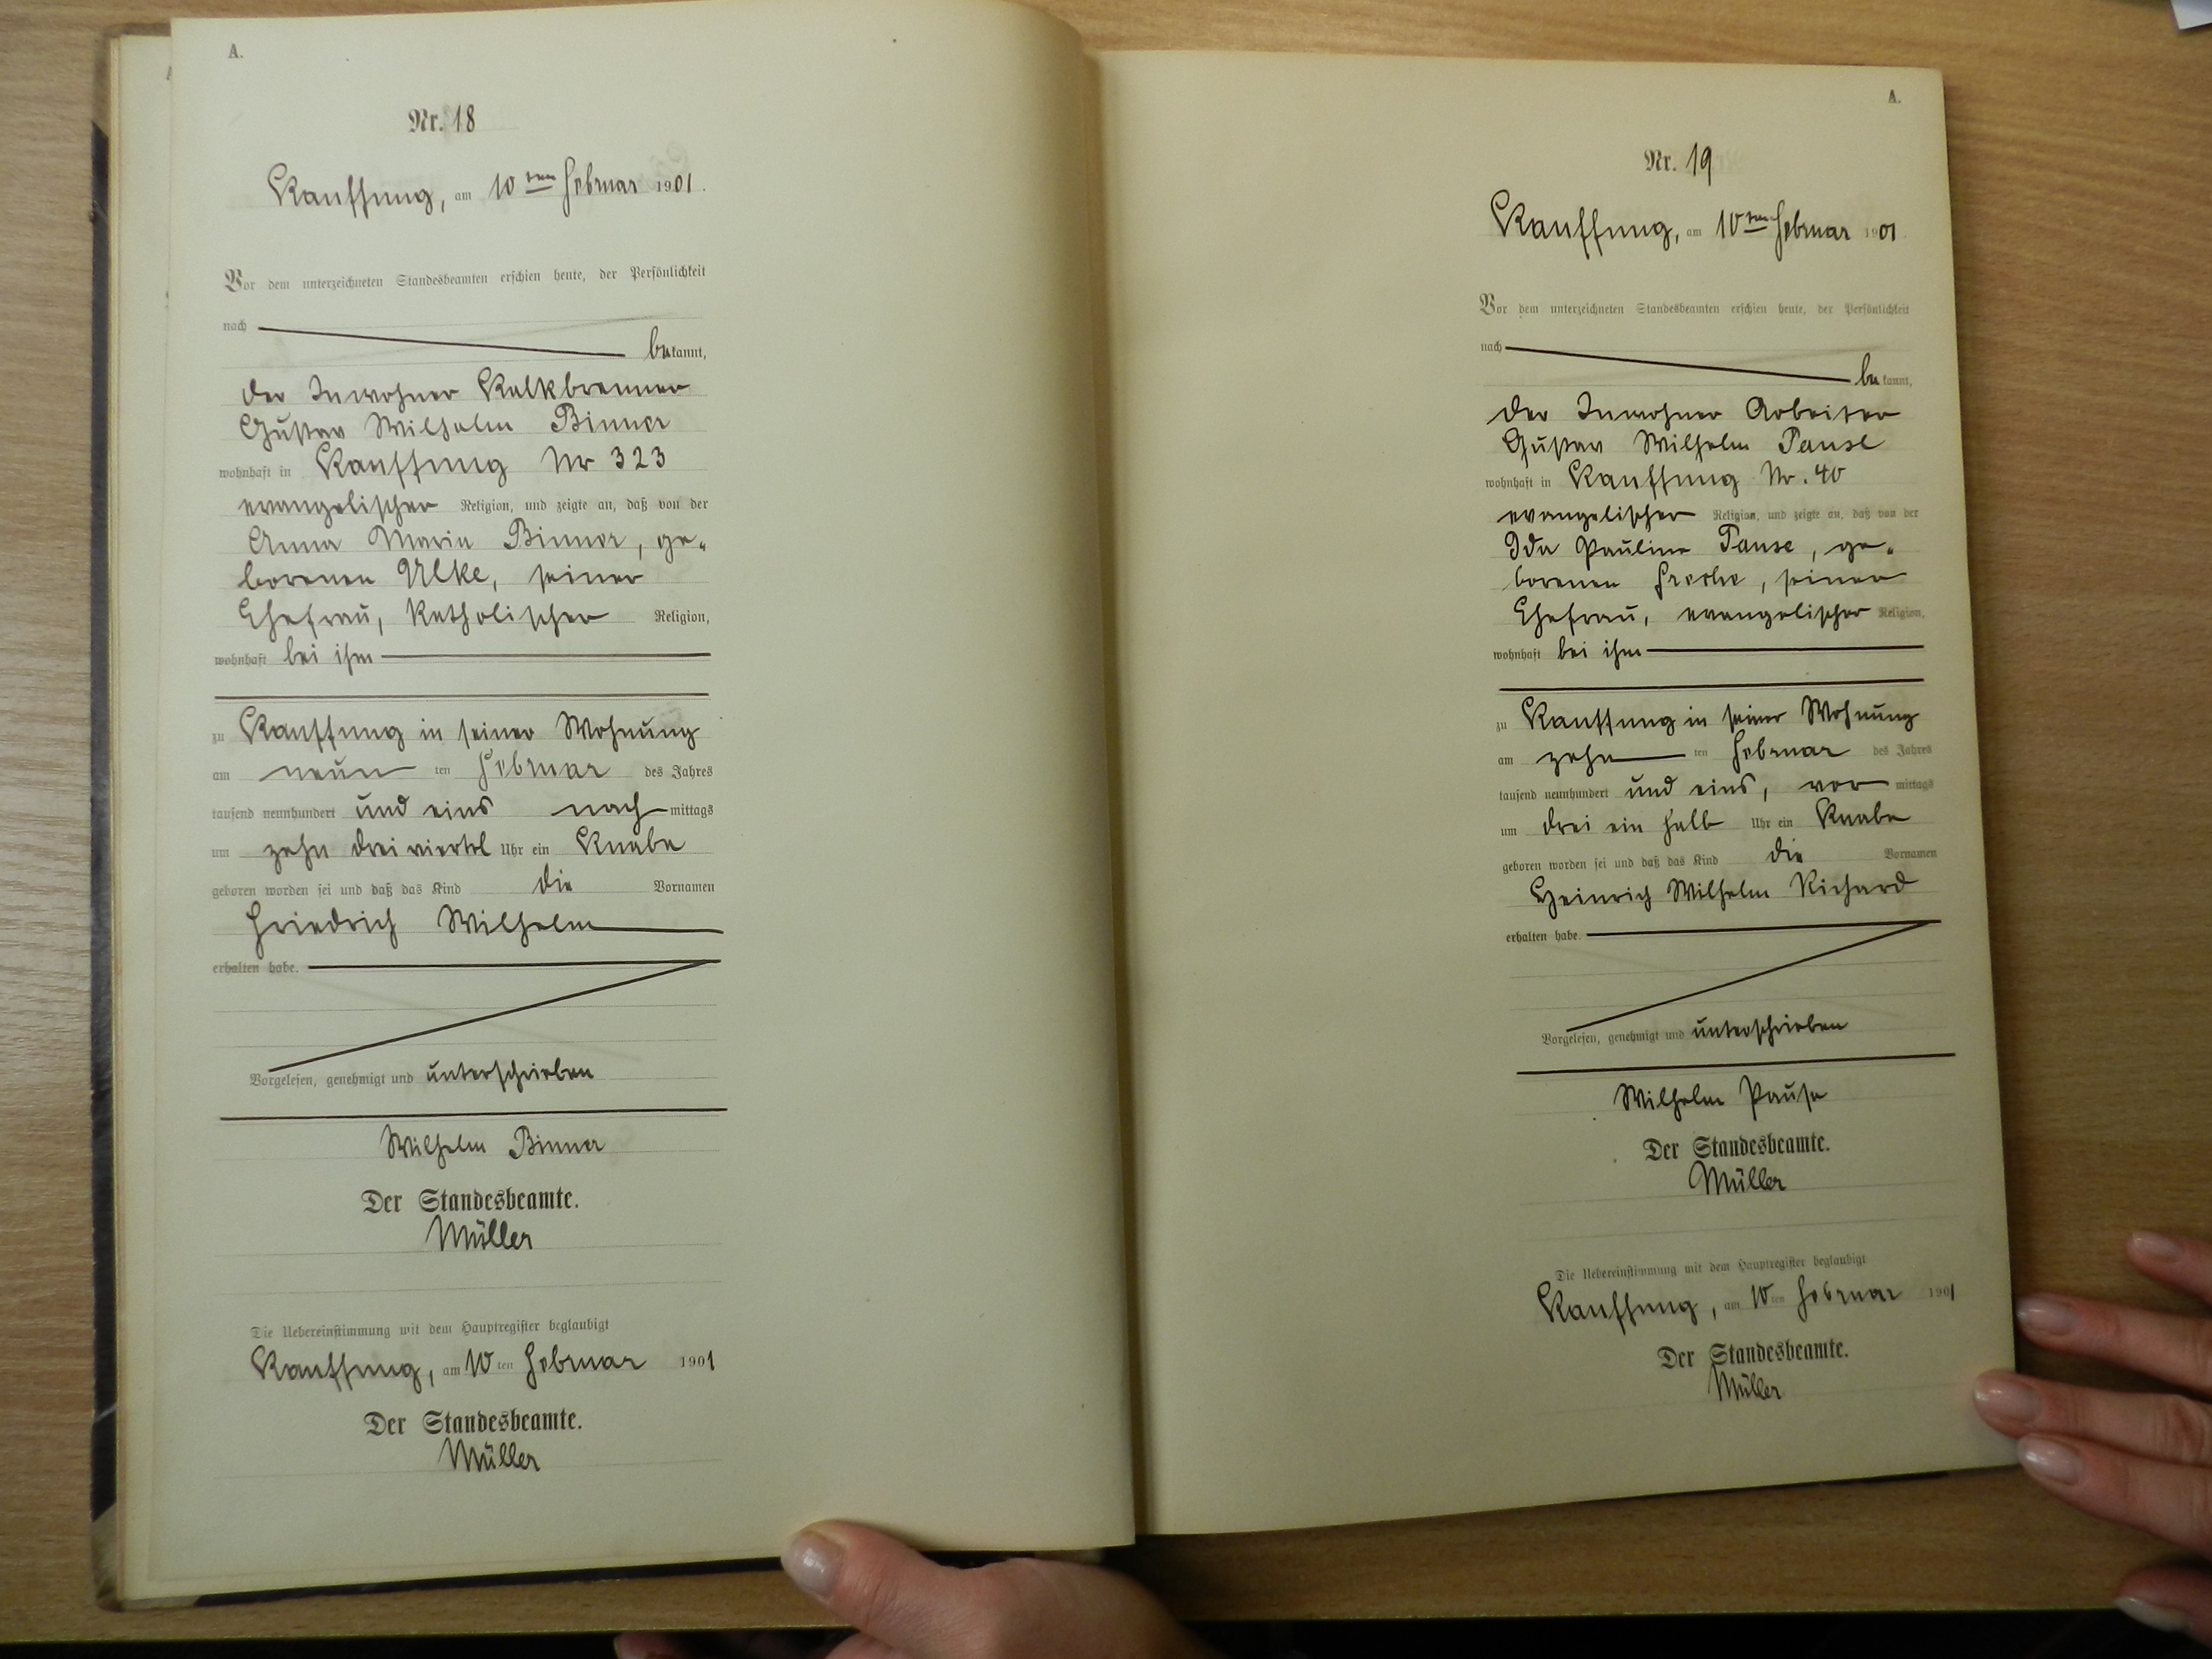 A.
Nr. 18
Kauffung, am 10ten Februar 1901.
Vor dem unterzeichneten Standesbeamten erschien heute, der Persönlichkeit
nach
bekannt,
der Inwohner Kalkbrenner
Gustav Wilhelm Binner
wohnhaft in Kauffung Nr 323
evangelischer Religion, und zeigte an, daß von der
Anna Maria Binner, ge-
borenen Ulke, seiner
Ehefrau, katholischer Religion,
wohnhaft bei ihm
zu Kauffung in seiner Wohnung
am neun ten Februar des Jahres
tausend neunhundert und eins nach mittags
um zehn dreiviertel Uhr ein Knabe
geboren worden sei und daß das Kind die Vornamen
Friedrich Wilhelm
erhalten habe.
Vorgelesen, genehmigt und unterschrieben
Wilhelm Binner
Der Standesbeamte.
Müller
Die Uebereinstimmung mit dem Hauptregister beglaubigt
Kauffung, am 10 ten Februar 1901
Der Standesbeamte.
Müller
A.
Nr. 19
Kauffung, am 10ten Februar 1901
Vor dem unterzeichneten Standesbeamten erschien heute, der Persönlichkeit
nach
bekannt,
der Inwohner Arbeiter
Gustav Wilhelm Pause
wohnhaft in Kauffung Nr. 40
evangelischer Religion, und zeigte an, daß von der
Ida Pauline Pause, ge-
borenen seiner
Ehefrau, evangelischer Religion,
wohnhaft bei ihm
zu Kauffung in seiner Wohnung
am zehn ten Februar des Jahres
tausend neunhundert und eins, vor mittags
um drei ein halb Uhr ein Knabe
geboren worden sei und daß das Kind die Vornamen
Heinrich Wilhelm Richard
erhalten habe.
Vorgelesen, genehmigt und unterschrieben
Wilhelm Pause
Der Standesbeamte.
Müller
Die Uebereinstimmung mit dem Hauptregister beglaubigt
Kauffung, am 10 ten Februar 1901
Der Standesbeamte.
Müller